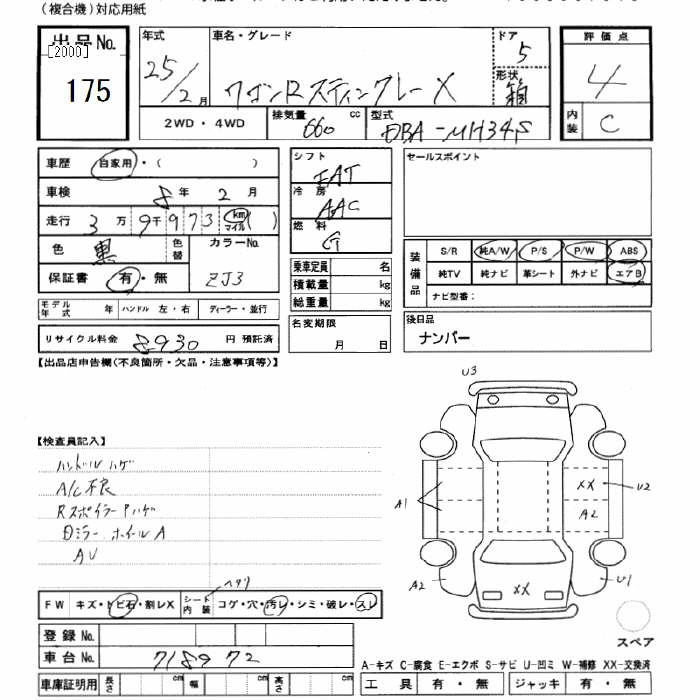 (複合機)対応用紙
出品No.
[2000]
175
年式
25/2月
車名・グレード
ワゴンRスティングレー X
ドア
5
形状
箱
評価点
4
内装
C
2WD・4WD
排気量 660 cc
型式 DBA-MH34S
車歴 自家用・( )
車検 8年 2月
走行 3万9千973 km マイル ( )
色 黒 色替
カラーNo. ZJ3
保証書 有・無
モデル年式 年 ハンドル 左・右 ディーラー・並行
リサイクル料金 8930 円 預託済
シフト
FAT
冷房
AAC
燃料
G
乗車定員 名
積載量 kg
総重量 kg
名変期限
月 日
セールスポイント
装備品
S/R 純A/W P/S P/W ABS
純TV 純ナビ 革シート 外ナビ エアB
ナビ型番:
後日品
ナンバー
【出品店申告欄(不良箇所・欠品・注意事項等)】
【検査員記入】
ハンドルハゲ
A/C不良
RスポイラーPハゲ
Dミラー ホイールA
AU
U3
A1
XX
U2
A2
A2
XX
U1
スペア
ヘタリ
FW キズ・トビ石・割レX シート内装 コゲ・穴・汚レ・シミ・破レ・スレ
登録No.
車台No. 718972
車庫証明用 長さ cm 幅 cm 高さ cm
A-キズ C-腐食 E-エクボ S-サビ U-凹ミ W-補修 XX-交換済
工具 有・無 ジャッキ 有・無